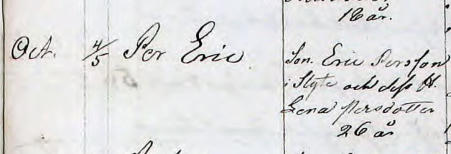 18 år.
Oct. 4/5 Per Eric
Son. Eric Persson
i Styte och dess H.
Lena Persdotter
26 år